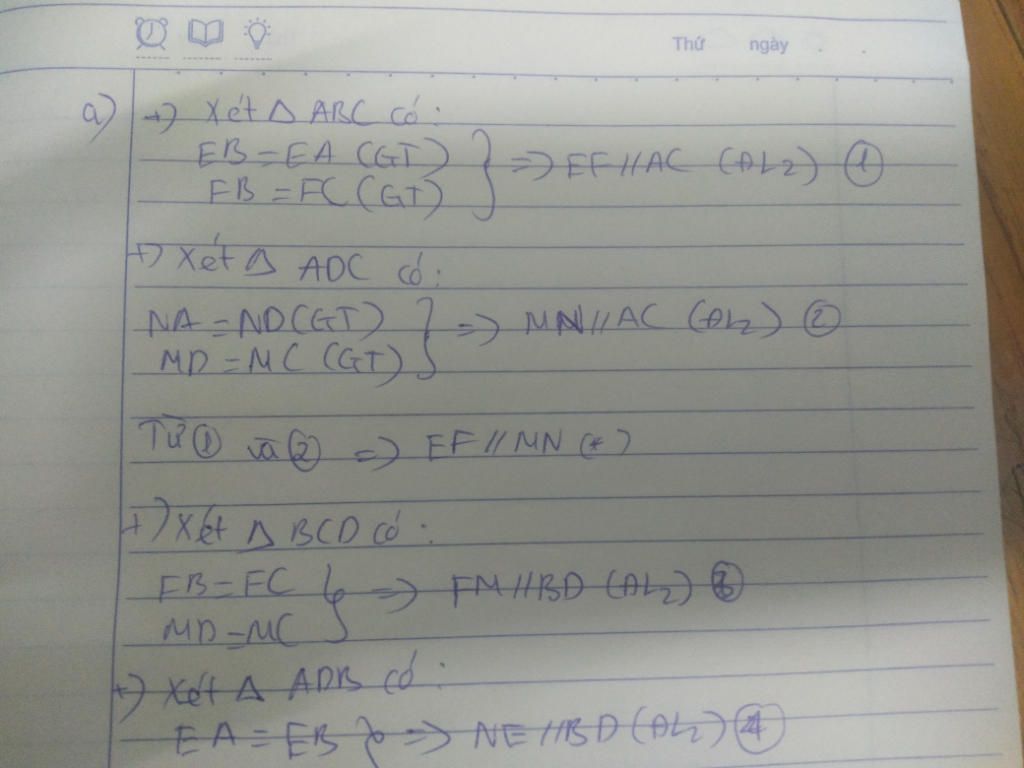 Thứ ngày . .
a) +) Xét Δ ABC có:
EB = EA (GT)
FB = FC (GT) } => EF // AC (ĐL2) ①
+) Xét Δ ADC có:
NA = ND (GT)
MD = MC (GT) } => MN // AC (ĐL2) ②
Từ ① và ② => EF // MN (*)
+) Xét Δ BCD có:
FB = FC
MD = MC } => FM // BD (ĐL2) ③
+) Xét Δ ADB có:
EA = EB } => NE // BD (ĐL2) ④